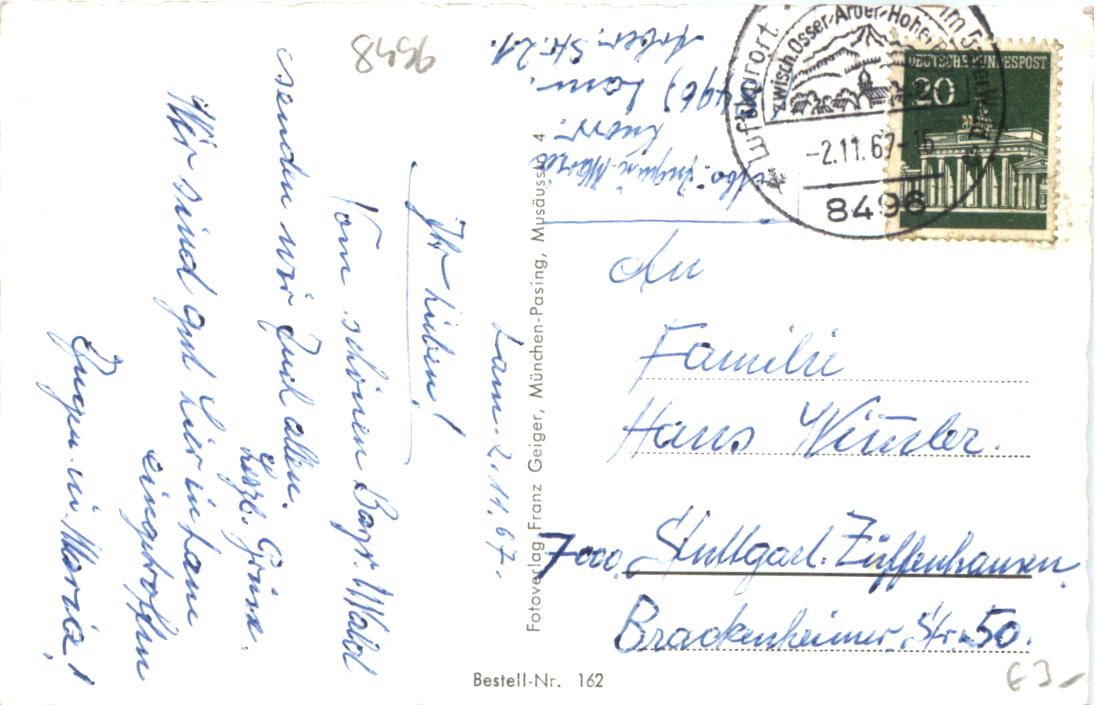 Lam. 2.11.67.
Ihr Lieben!
Vom schönen Bayr. Wald
senden wir Euch allen.
herzl. Grüsse.
Wir sind gut hier in Lam
eingetroffen
Eugen u. Maria!
9648
Eugen Maria
8496) Lam.
Arber. Str. 21.
Luftkurort
zwisch. Osser-Arber-Hoher
im
-2.11.67-15
8496
DEUTSCHE BUNDESPOST
20
An
Familie
Hans
7000 Stuttgart-Zuffenhausen.
Brackenheimer. Str. 50.
Fotoverlag Franz Geiger, München-Pasing, Musäusstr. 4
Bestell-Nr. 162
63-